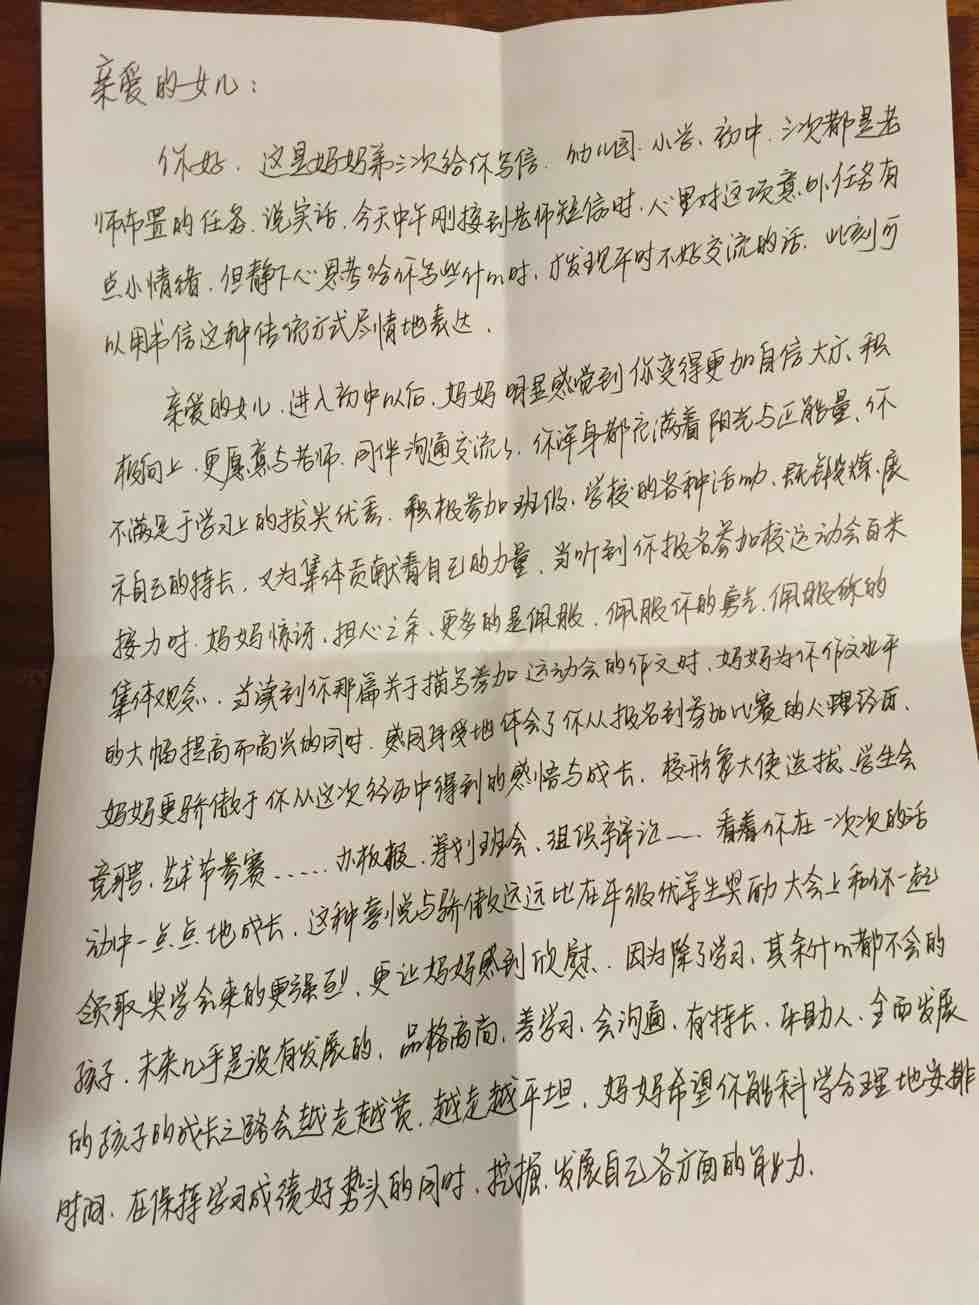 亲爱的女儿：
你好，这是妈妈第三次给你写信，幼儿园、小学、初中，三次都是老
师布置的任务，说实话，今天中午刚接到老师短信时，心里对这项意外任务有
点小情绪，但静下心思考给你写些什么时，才发现平时不好交流的话，此刻可
以用书信这种传统方式尽情地表达。
亲爱的女儿，进入初中以后，妈妈明显感觉到你变得更加自信大方、积
极向上，更愿意与老师、同伴沟通交流，你浑身都充满着阳光与正能量，你
不满足于学习上的拔尖优秀，积极参加班级、学校的各种活动，既锻炼、展
示自己的特长，又为集体贡献着自己的力量，当听到你报名参加校运动会百米
接力时，妈妈惊讶、担心之余，更多的是佩服，佩服你的勇气，佩服你的
集体观念，当读到你那篇关于描写参加运动会的作文时，妈妈为你作文水平
的大幅提高而高兴的同时，感同身受地体会了你从报名到参加比赛的心理经历，
妈妈更骄傲于你从这次经历中得到的感悟与成长，校形象大使选拔、学生会
竞聘，艺术节参赛……办板报、筹划班会、组织辩论……看着你在一次次的活
动中一点点地成长，这种喜悦与骄傲远远比在年级优等生奖励大会上和你一起
领取奖学金来的更强烈，更让妈妈感到欣慰，因为除了学习，其余什么都不会的
孩子，未来几乎是没有发展的，品格高尚，善学习，会沟通，有特长，乐助人，全面发展
的孩子的成长之路会越走越宽，越走越平坦，妈妈希望你能科学合理地安排
时间，在保持学习成绩好势头的同时，挖掘、发展自己各方面的能力。